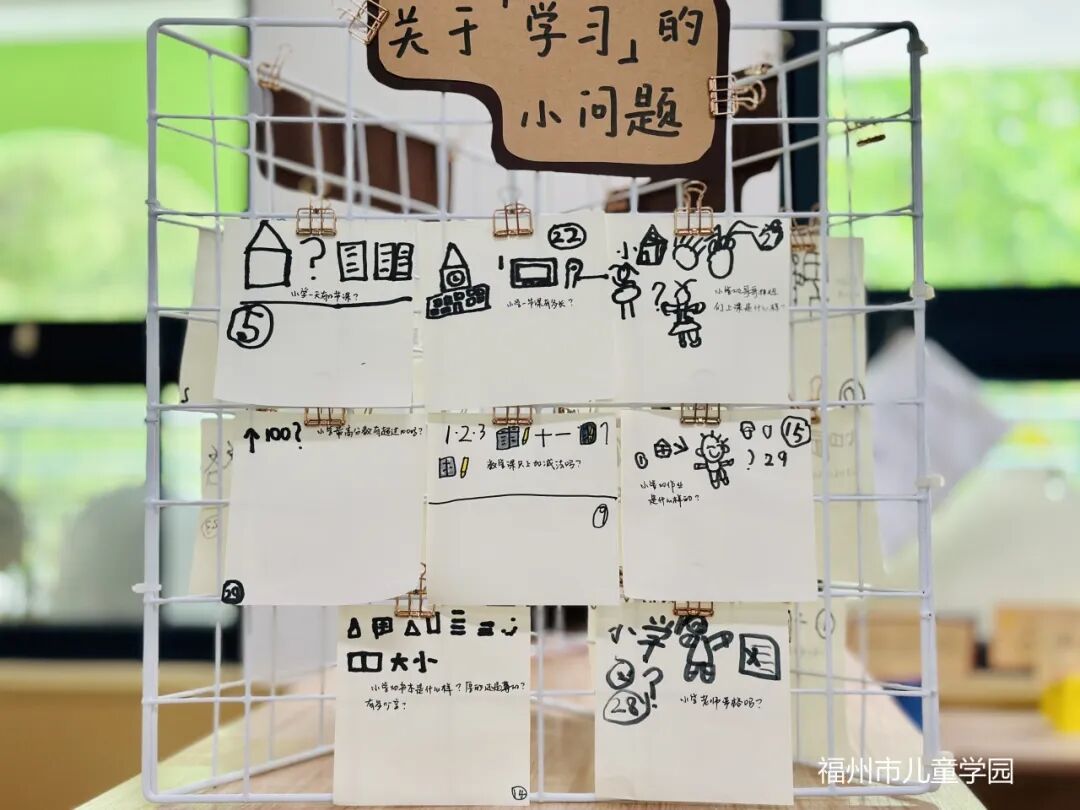 关于「学习」的
小问题
?
小学一天有几节课?
5
22
小学一节课有多长?
小
29
?
小学的哥哥姐姐
们上课是什么样?
↑100?
小学最高分数有超过100吗?
29
1·2·3
+一
?
数学课只上加减法吗?
9
15
? 29
小学的作业
是什么样的?
大小
小学的书本是什么样?厚的还是薄的?
有多少字?
14
小学
?
28
小学老师严格吗?
福州市儿童学园